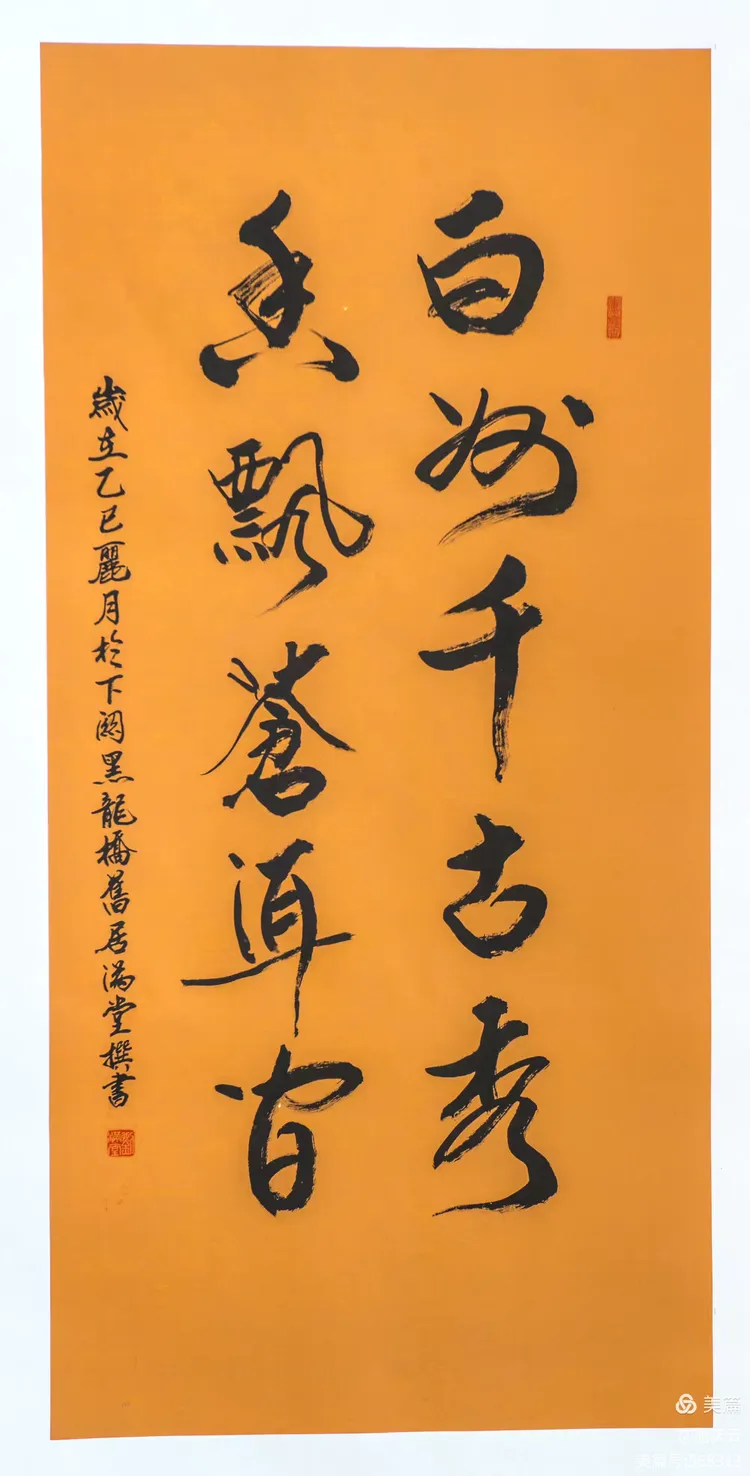 白州千古秀
香飄蒼洱間
歲在乙巳麗月於下關黑龍橋舊居滿堂撰書
美篇